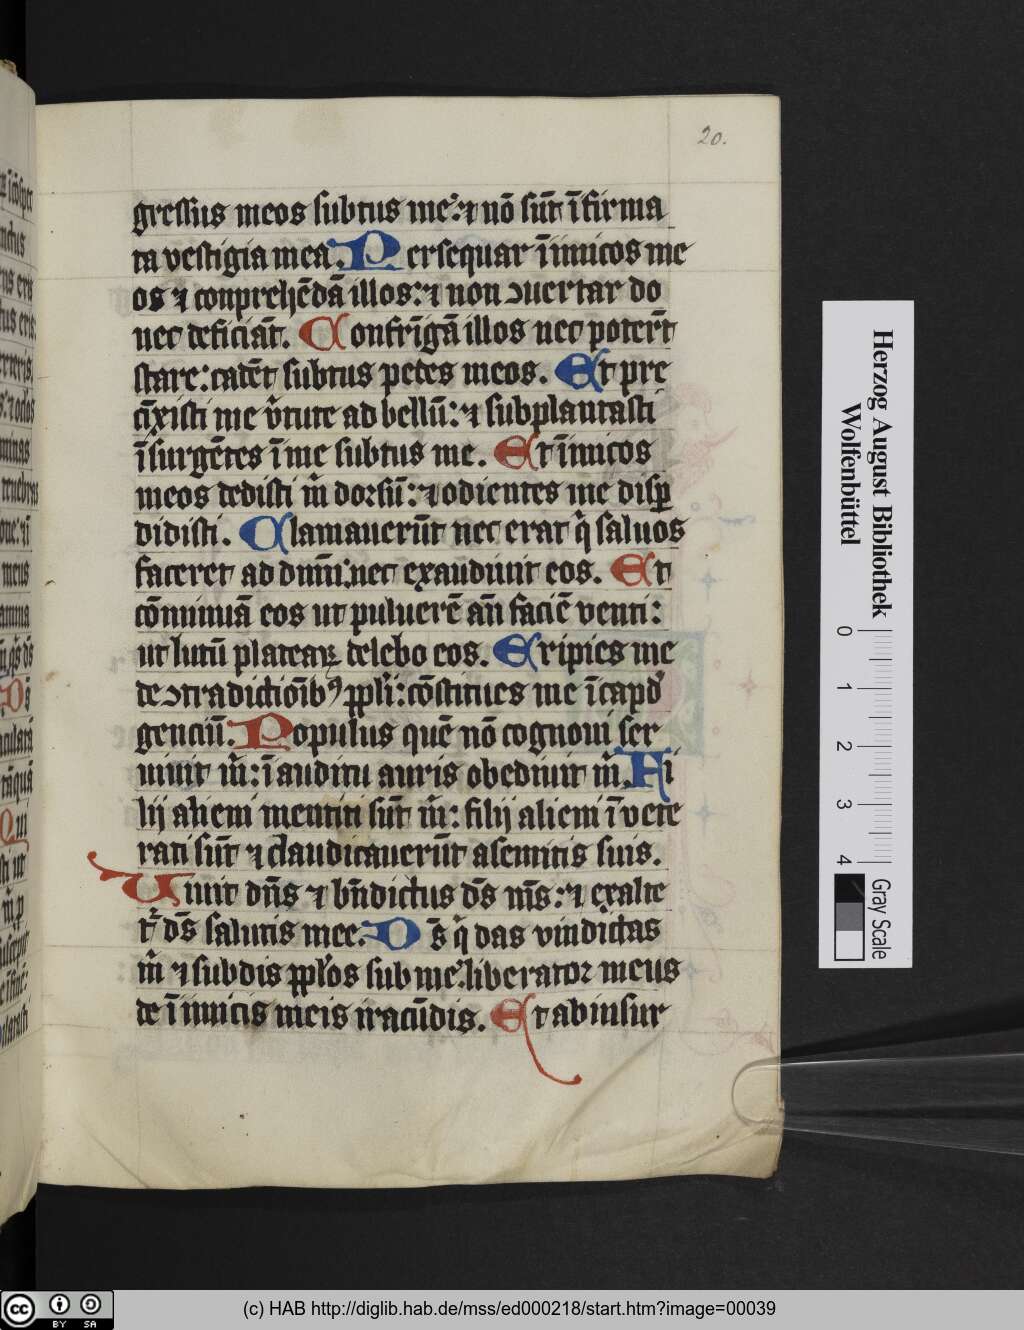 20.
gressus meos subtus me: ⁊ nō sūt īfirma
ta vestigia mea. Persequar īimicos me
os ⁊ conprehēdā illos: ⁊ non ɔuertar do
nec deficiāt. Confrīgā illos nec poterīt
stare: cadēt subtus pedes meos. Et pre
cīxisti me v̄tute ad bellū: ⁊ subplantasti
īsurgētes ī me subtus me. Et īimicos
meos dedisti m̄ dorsū: ⁊ odientes me disꝑ
didisti. Clamauerūt nec erat q̄ saluos
faceret ad dn̄m: nec exaudiuit eos. Et
cōminuā eos ut puluerē an̄ faciē venti:
ut lutū plateaꝝ delebo eos. Eripies me
de ɔtradictiōibꝰ ppl̄i: cōstitues me ī capđ
genciū. Populus quē nō cognoui ser
uiuit m̄: ī auditu auris obediuit m̄. Fi
lij alieni mentiti sūt m̄: filij alieni īvete
rati sūt ⁊ claudicauerūt a semitis suis.
Viuit dn̄s ⁊ bn̄dictus dō̄s m̄s: ⁊ exalte
t̄ dō̄s salutis mee. Dō̄s q̄ das vindictas
m̄ ⁊ subdis ppl̄os sub me: liberator meus
de īimicis meis iracūdis. Et ab insur
Herzog August Bibliothek
Wolfenbüttel
0 1 2 3 4
Gray Scale
cc BY SA
(c) HAB http://diglib.hab.de/mss/ed000218/start.htm?image=00039